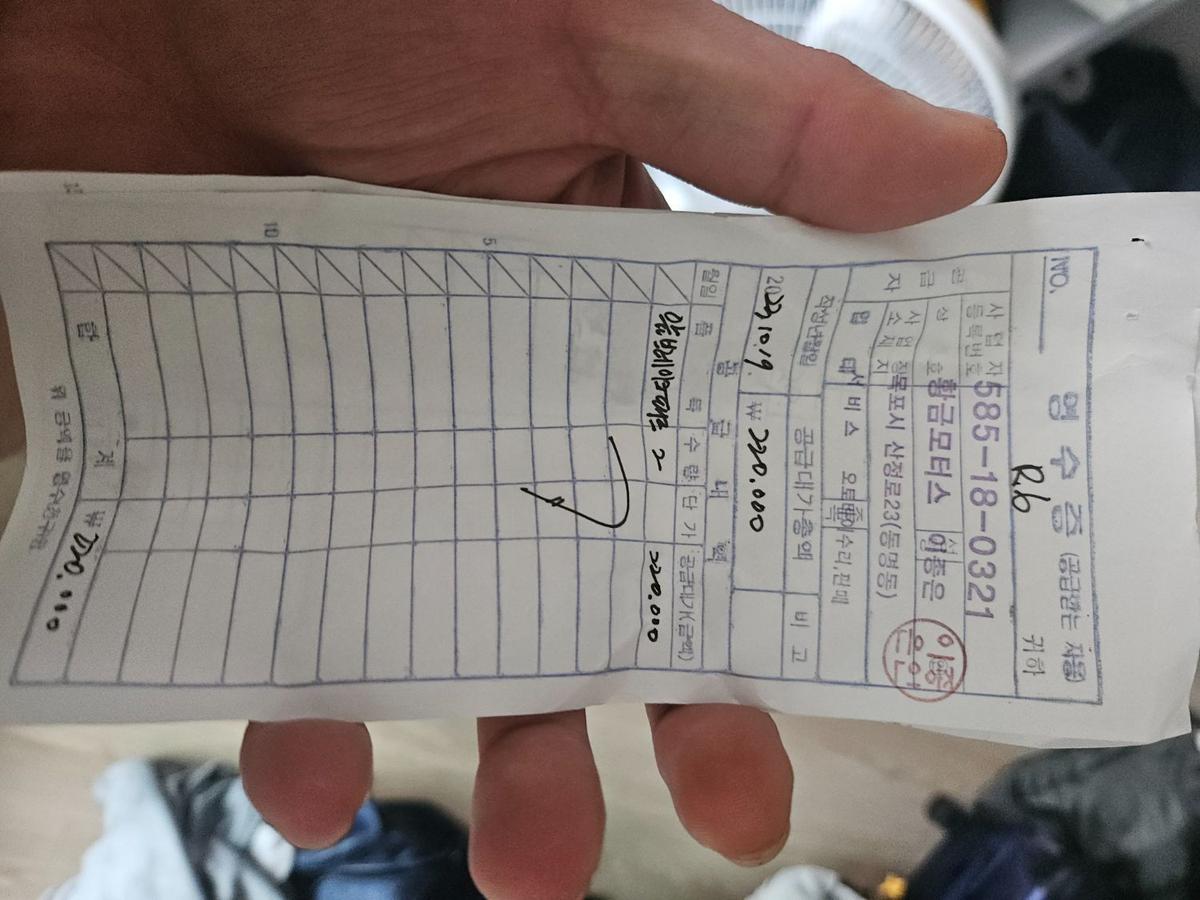 NO.
영 수 증 (공급받는 자용)
R6 귀하
공급자
사업자등록번호 585-18-0321
상호 황금모터스 성명 이종은
사업장소재지 목포시 산정로23(동명동)
업태 서비스 종목 오토바이수리,판매
작성년월일 공급대가총액 비고
2023.10.19. ₩ 220.000
공급내역
월일 품목 수량 단가 공급대가(금액)
앞브레이크패드 2- 220.000
5
10
15
합계 ₩ 220.000
위 금액을 영수